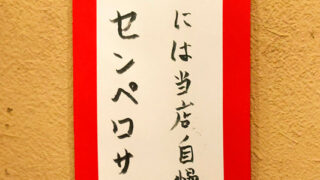 には当店自慢
センペロサ